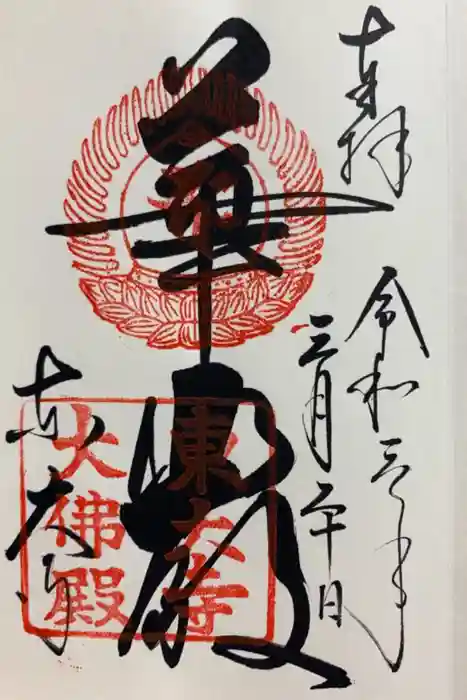 奉拝
令和三年
三月二十日
華厳
東大寺
大佛殿
東大寺